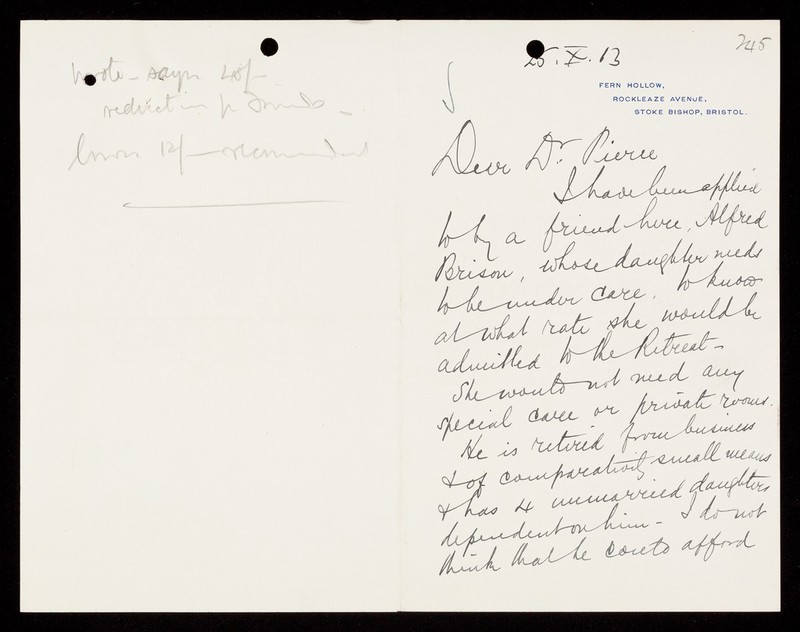 wrote - says 40/-
reduction for Friends -
245
25.X.13
FERN HOLLOW,
ROCKLEAZE AVENUE,
STOKE BISHOP, BRISTOL.
Dear Dr. Pierce
I have been applied
to by a friend here, Alfred
Brison, whose daughter needs
to be under care, to know
at what rate she would be
admitted to the Retreat -
She would not need any
special care or private rooms.
He is retired from business
& of comparatively small means
& has 4 unmarried daughters
dependent on him - I do not
think that he could afford